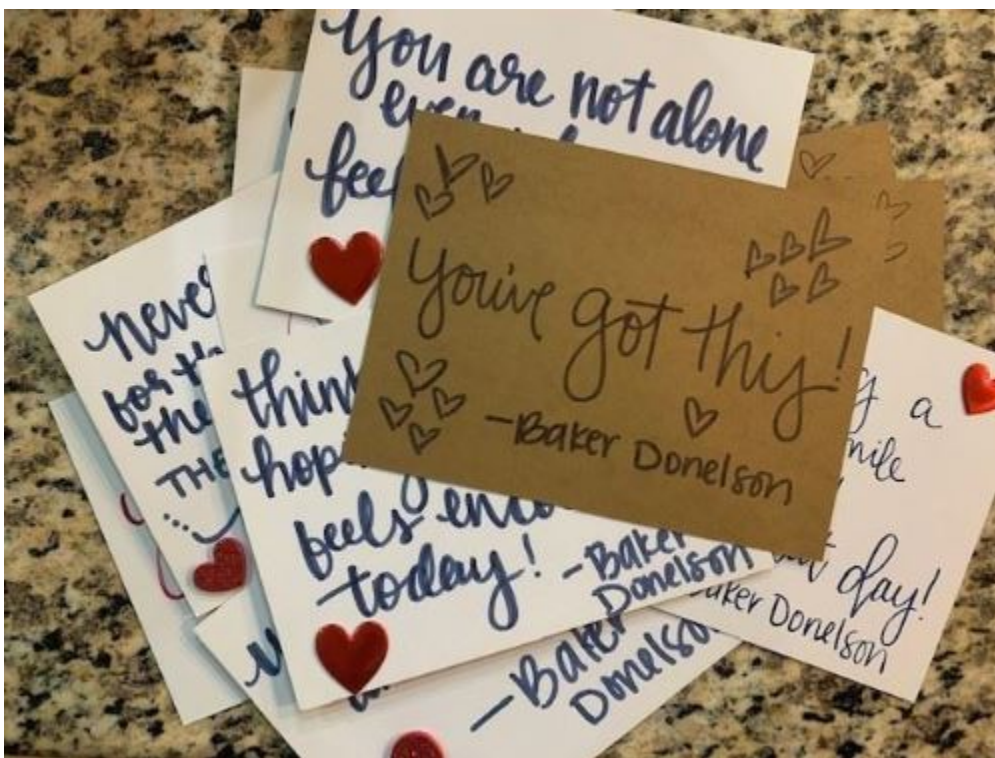 You are not alone
even
feel
You've got this!
-Baker Donelson
never
for th
the
THE
think
hop
feels enco
today!
-Baker
Donelson
-Baker
Donelson
a
mile
day!
Baker Donelson